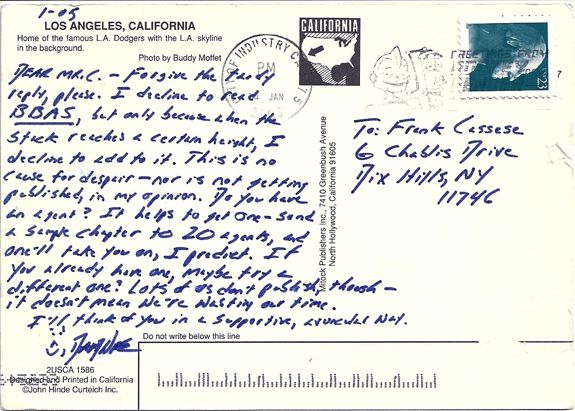 1-05
LOS ANGELES, CALIFORNIA
Home of the famous L.A. Dodgers with the L.A. skyline
in the background.
Photo by Buddy Moffet
DEAR MR. C. - Forgive the tardy
reply, please. I decline to read
BBAS, but only because when the
stack reaches a certain height, I
decline to add to it. This is no
cause for despair - nor is not getting
published, in my opinion. Do you have
an agent? It helps to get one - send
a sample chapter to 20 agents, and
one'll take you on, I predict. If
you already have one, maybe try a
different one? Lots of us don't publish, though -
it doesn't mean we're wasting our time.
I'll think of you in a supportive, avuncular way.
Do not write below this line
2USCA 1586
Designed and Printed in California
©John Hinde Curteich Inc.
Mitock Publishers Inc., 7410 Greenbush Avenue
North Hollywood, California 91605
INDUSTRY CA
PM
JAN
CALIFORNIA
GREETINGS FROM
USA 23
To: Frank Cassese
6 Chablis Drive
Dix Hills, NY
11746